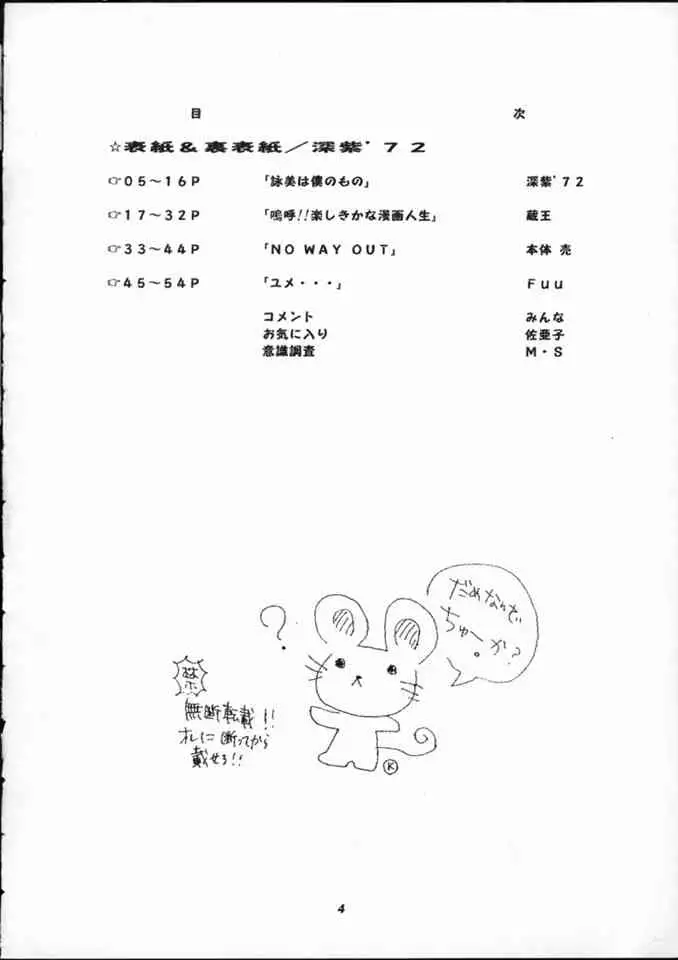 目 次
☆表紙＆裏表紙／深紫'７２
☞０５～１６Ｐ 「詠美は僕のもの」 深紫'７２
☞１７～３２Ｐ 「嗚呼!!楽しきかな漫画人生」 蔵王
☞３３～４４Ｐ 「ＮＯ ＷＡＹ ＯＵＴ」 本体 売
☞４５～５４Ｐ 「ユメ・・・」 Ｆｕｕ
コメント みんな
お気に入り 佐亜子
意識調査 Ｍ・Ｓ
だめなんで
ちゅーか?
?
禁
無断転載!!
オレに断ってから
載せろ!!
K
4